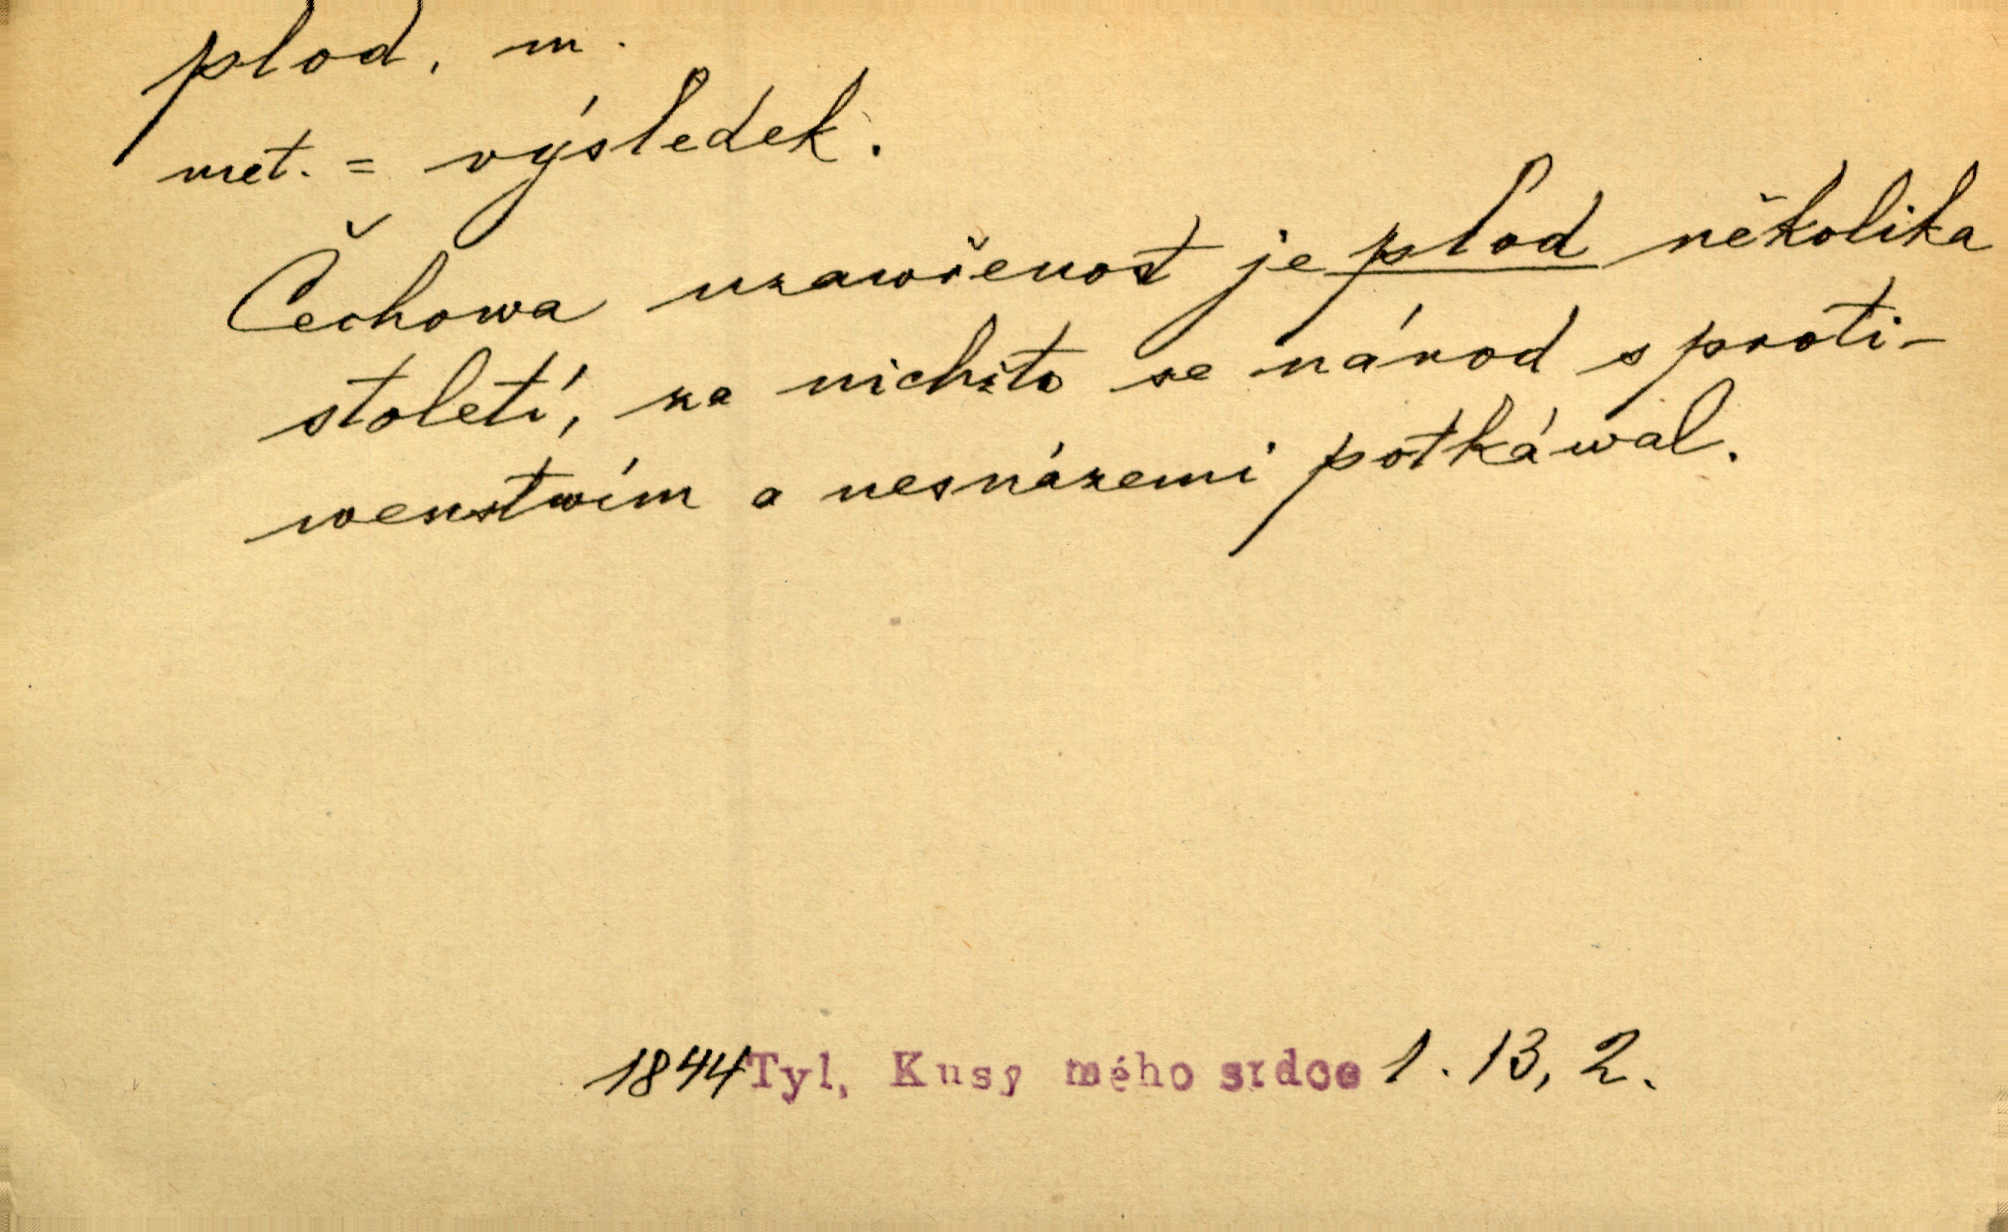 plod, m.
met. = výsledek.
Čechowa uzawřenost je plod několika
století, za nichžto se národ s proti-
wenstwím a nesnázemi potkáwal.
1844 Tyl, Kusy mého srdce 1. 13, 2.